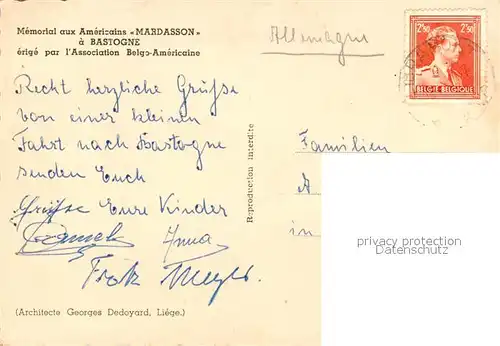 Mémorial aux Américains «MARDASSON»
à BASTOGNE
érigé par l'Association Belgo-Américaine
Allemagne
2F50 2F50
BELGIE-BELGIQUE
Recht herzliche Grüße
von einer kleinen
Fahrt nach Bastogne
senden Euch
Grüsse Eure Kinder
Anna
Reproduction interdite
Familien
A
in
privacy protection
Datenschutz
(Architecte Georges Dedoyard, Liége.)